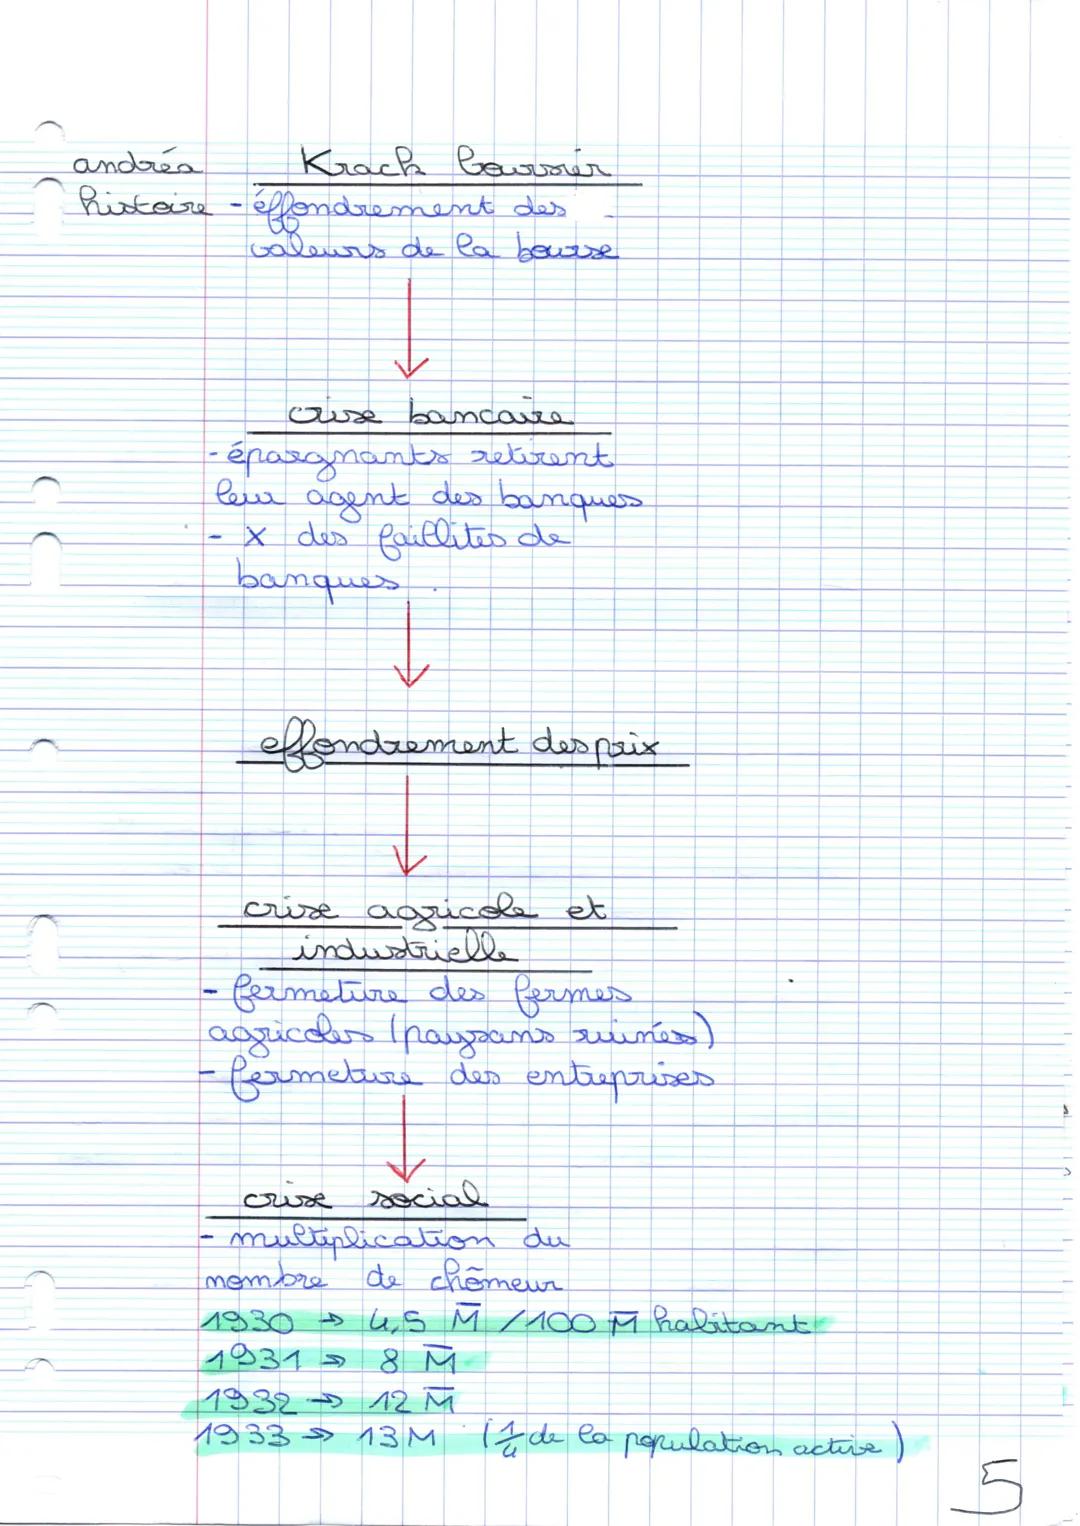 andréa Krach boursier
histoire - éffondrement des
valeurs de la bourse
crise bancaire
- épargnants retirent
leur agent des banques
- X des faillites de
banques
effondrement des prix
crise agricole et
industrielle
- fermeture des fermes
agricoles (paysans ruinés)
- fermeture des entreprises
crise social
- multiplication du
nombre de chômeur
1930 → 4,5 M̅ / 100 M̅ habitant
1931 → 8 M̅
1932 → 12 M̅
1933 → 13 M (1/4 de la population active)
5